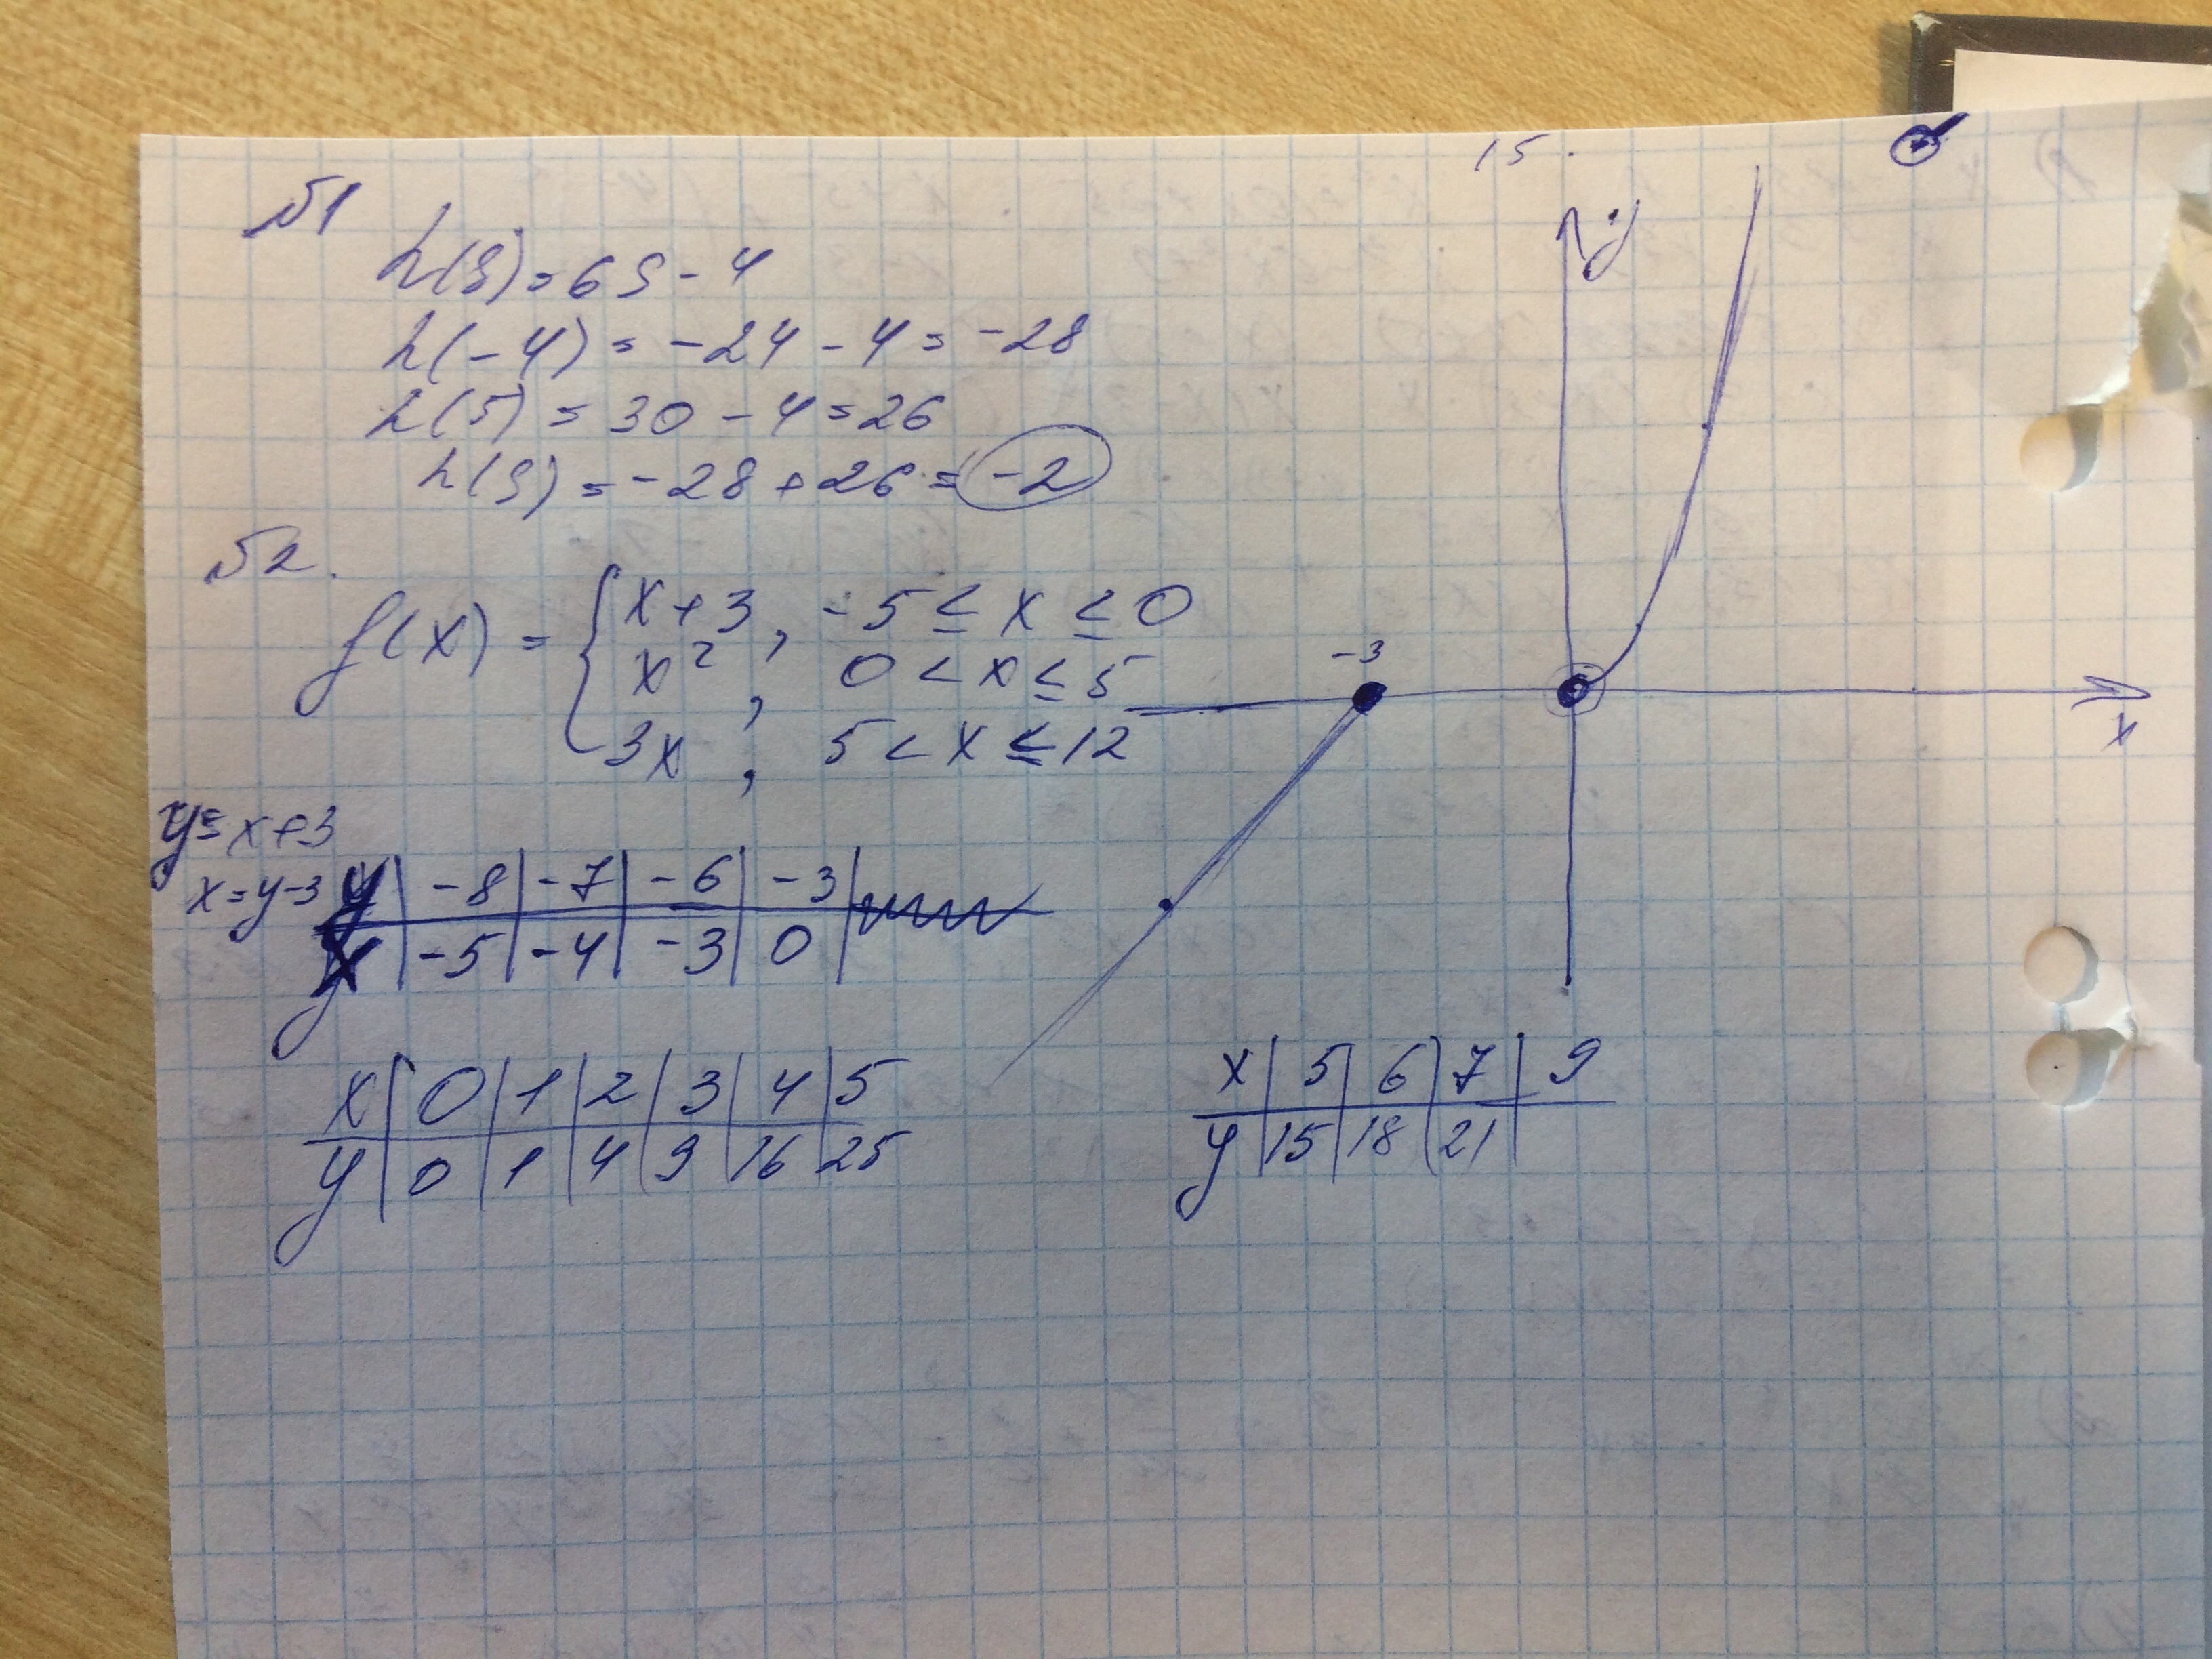 №1
h(s) = 6s - 4
h(-4) = -24 - 4 = -28
h(5) = 30 - 4 = 26
h(s) = -28 + 26 = -2
№2.
f(x) = { x+3, -5 ≤ x ≤ 0
x², 0 < x ≤ 5
3x, 5 < x ≤ 12
y = x+3
x = y-3
y | -8 | -7 | -6 | -3 |
x | -5 | -4 | -3 | 0 |
x | 0 | 1 | 2 | 3 | 4 | 5
y | 0 | 1 | 4 | 9 | 16 | 25
15
y
-3
x
x | 5 | 6 | 7 | 9
y | 15 | 18 | 21 |